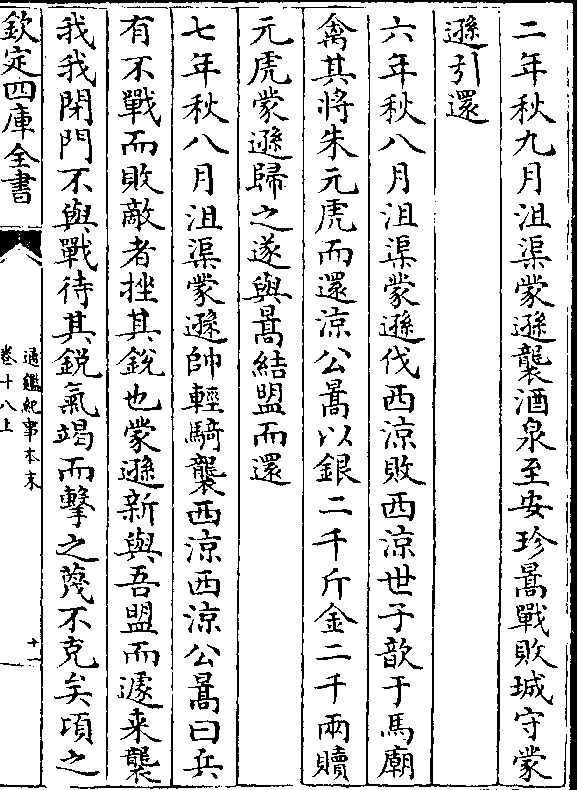 二年秋九月沮渠蒙遜襲酒泉至安珍暠戰敗城守蒙
遜引還
六年秋八月沮渠蒙遜伐西涼敗西涼世子歆于馬廟
禽其將朱元虎而還涼公暠以銀二千斤金二千兩贖
元虎蒙遜歸之遂與暠結盟而還
七年秋八月沮渠蒙遜帥輕騎襲西涼西涼公暠曰兵
有不戰而敗敵者挫其銳也蒙遜新與吾盟而遽来襲
我我閉門不與戰待其銳氣竭而擊之蔑不克矣頃之
欽定四庫全書
通鑑紀事本末
卷十八上
十一